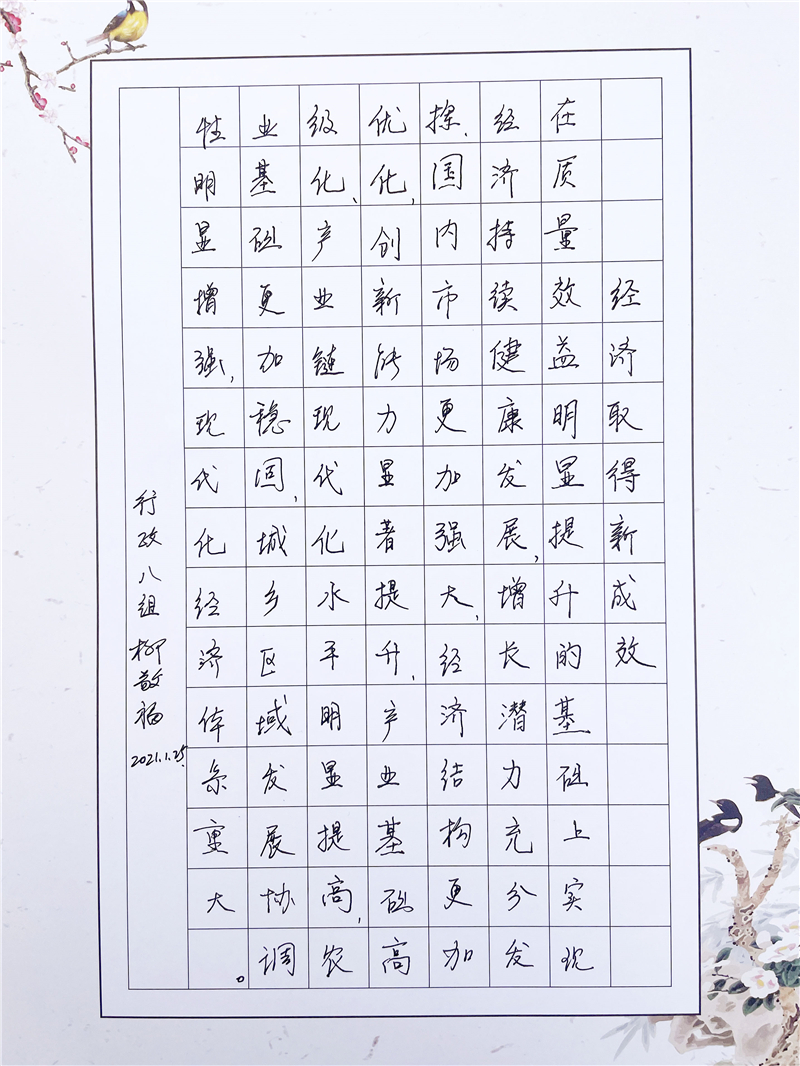 经济取得新成效
在质量效益明显提升的基础上实现
经济持续健康发展,增长潜力充分发
挥、国内市场更加强大,经济结构更加
优化,创新能力显著提升,产业基础高
级化、产业链现代化水平明显提高,农
业基础更加稳固,城乡区域发展协调
性明显增强,现代化经济体系重大。
行政八组 柳敬福 2021.1.25.